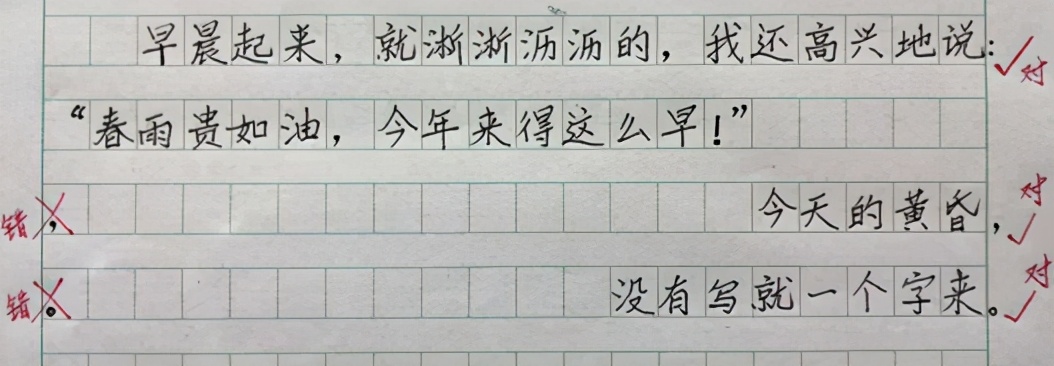 早晨起来，就淅淅沥沥的，我还高兴地说： 对
“春雨贵如油，今年来得这么早！”
错 ， 今天的黄昏， 对
错 。 没有写就一个字来。 对